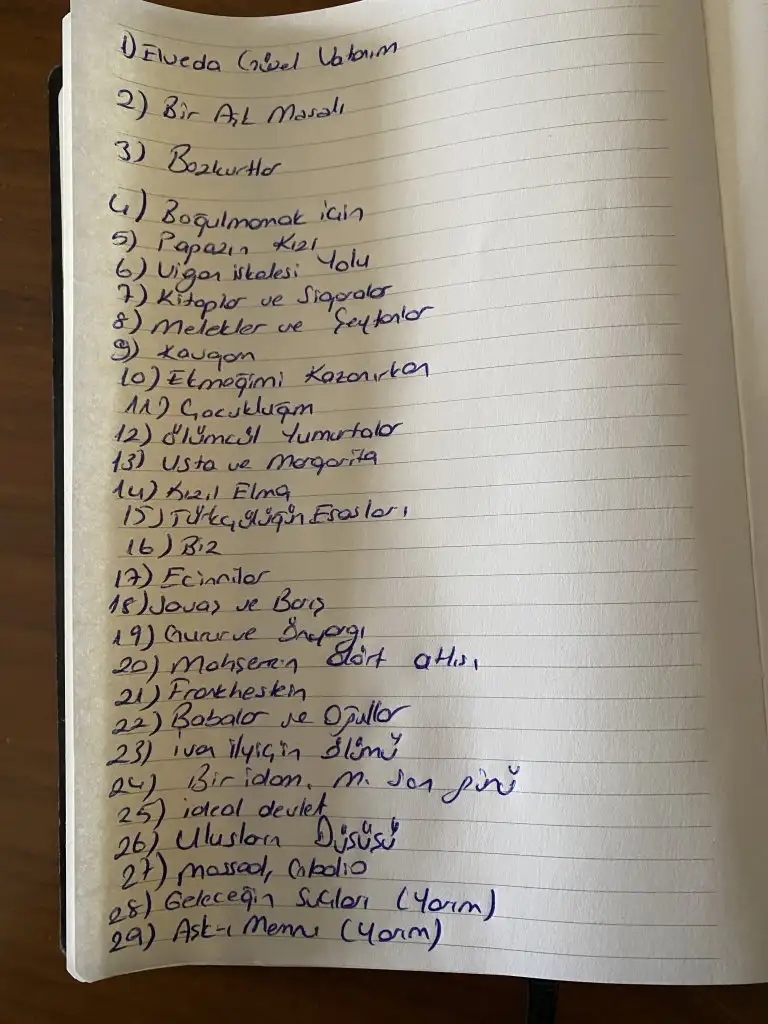 1) Elveda Güzel Vatanım
2) Bir Aşk Masalı
3) Bozkurtlar
4) Boğulmamak için
5) Papazın Kızı
6) Wigan iskelesi Yolu
7) Kitaplar ve Sigaralar
8) Melekler ve Şeytanlar
9) Kavgam
10) Ekmeğimi Kazanırken
11) Çocukluğum
12) Ölümcül Yumurtalar
13) Usta ve Margarita
14) Kızıl Elma
15) Türkçülüğün Esasları
16) Biz
17) Ecinniler
18) Savaş ve Barış
19) Gurur ve Önyargı
20) Mahşerin dört atlısı
21) Frankhestein
22) Babalar ve Oğullar
23) ivan ilyiçin ölümü
24) Bir idam. m. son günü
25) ideal devlet
26) Ulusların Düşüşü
27) Mossad,
28) Geleceğin Suçları (Yarım)
29) Aşk-ı Memnu (Yarım)